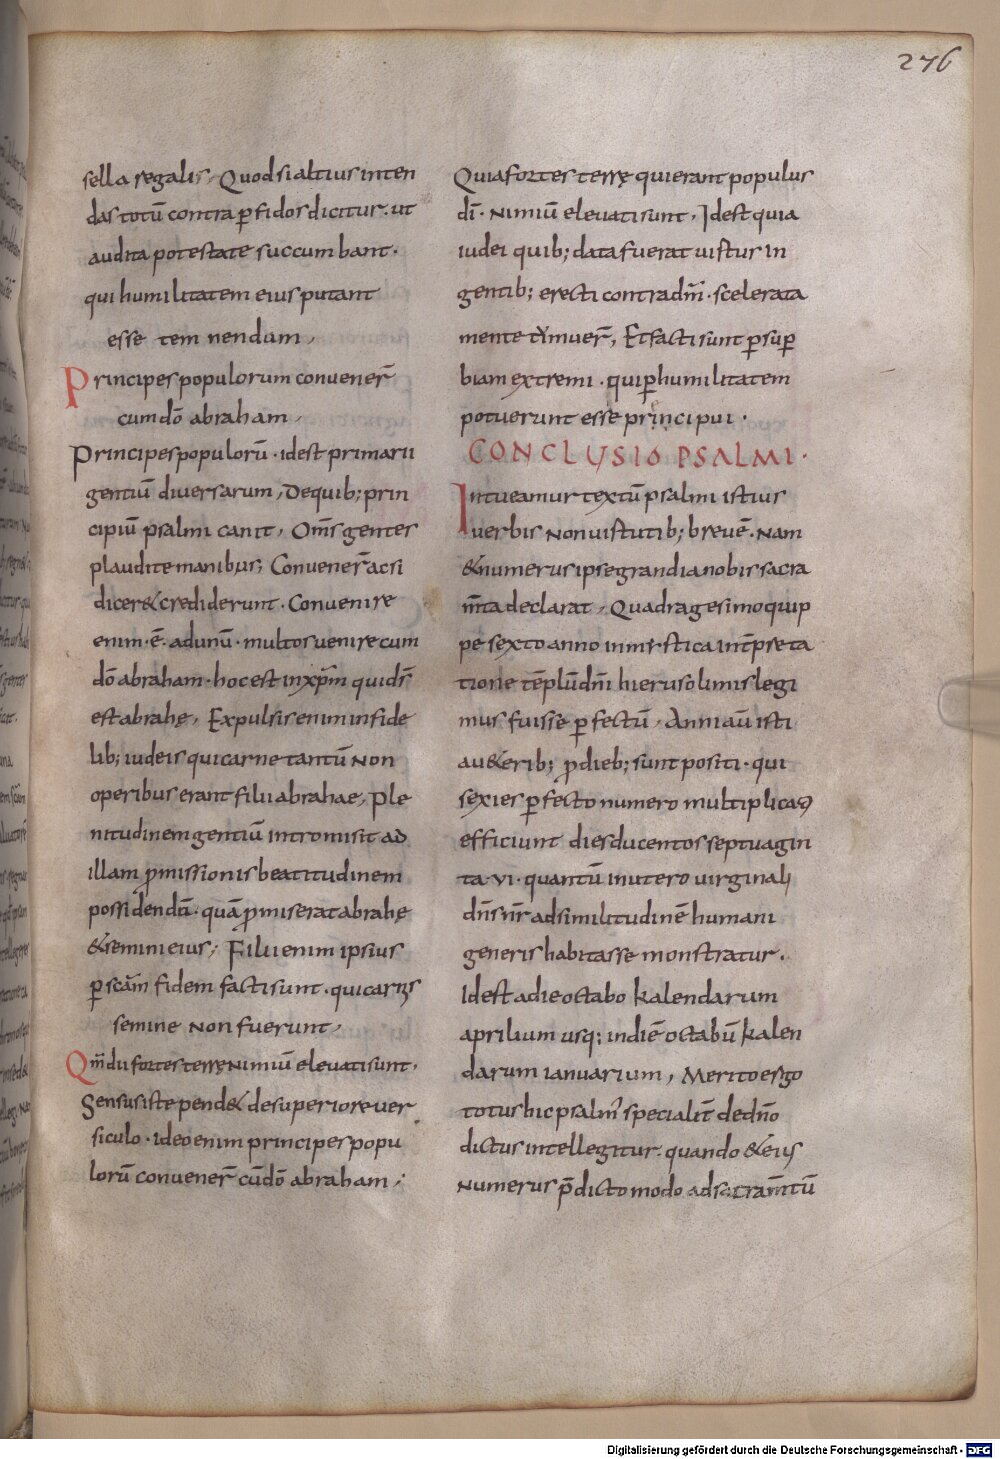 276
sella regalis, Quod si altius inten
das totū contra pfidos dicitur. ut
audita potestate succumbant.
qui humilitatem eius putant
esse temnendam,
Principes populorum convener̄
cum dō abraham,
Principes populorū. idest primarii
gentiū diversarum, De quib; prin
cipiū psalmi canit, Om̄s gentes
plaudite manibus; Convener̄ ac si
diceret crediderunt. Convenire
enim. ē. adunū. multos venire cum
dō abraham. hoc est in xp̄m qui dr̄
est abrahę, Expulsis enim infide
lib; iudeis qui carne tantū non
operibus erant filii abrahae, Ple
nitudinem gentiū intromisit ad
illam pmissionis beatitudinem
possidendā. quā pmiserat abrahę
& semini eius; Filii enim ipsius
p scām fidem facti sunt. qui carnis
semine non fuerunt,
Qm̄ dii fortes terrę nimiū elevati sunt.
Sensus iste pend& de superiore ver
siculo. ideo enim principes popu
lorū convener̄ cū dō abraham;
Quia fortes terrę qui erant populus
dī. nimiū elevati sunt, Idest quia
iudei quib; data fuerat virtus in
gentib; erecti contra dn̄m. scelerata
mente tumuer̄, Et facti sunt p sup
biam extremi. qui p humilitatem
potuerunt esse principui.
CONCLUSIO PSALMI.
Intueamur textū psalmi istius
verbis non virtutib; brevē. Nam
& numerus ipse grandia nobis sacra
m̄ta declarat, Quadragesimo quip
pe sexto anno in mistica int̄preta
tione tēplū dn̄i hierusolimis legi
mus fuisse pfectū, Anni aū isti
au&erib; p dieb; sunt positi. qui
sexies pfecto numero multiplicati
efficiunt dies ducentos septuagin
ta. vi. quantū in utero virginali
dn̄s nr̄ ad similitudinē humani
generis habitasse monstratur.
Idest a die octabo kalendarum
aprilium usq; in diē octabū kalen
darum ianuarium, Merito ergo
totus hic psalm' specialit̄ de dn̄o
dictus intellegitur. quando & eius
numerus p̄dicto modo ad sacram̄tū
Digitalisierung gefördert durch die Deutsche Forschungsgemeinschaft - DFG